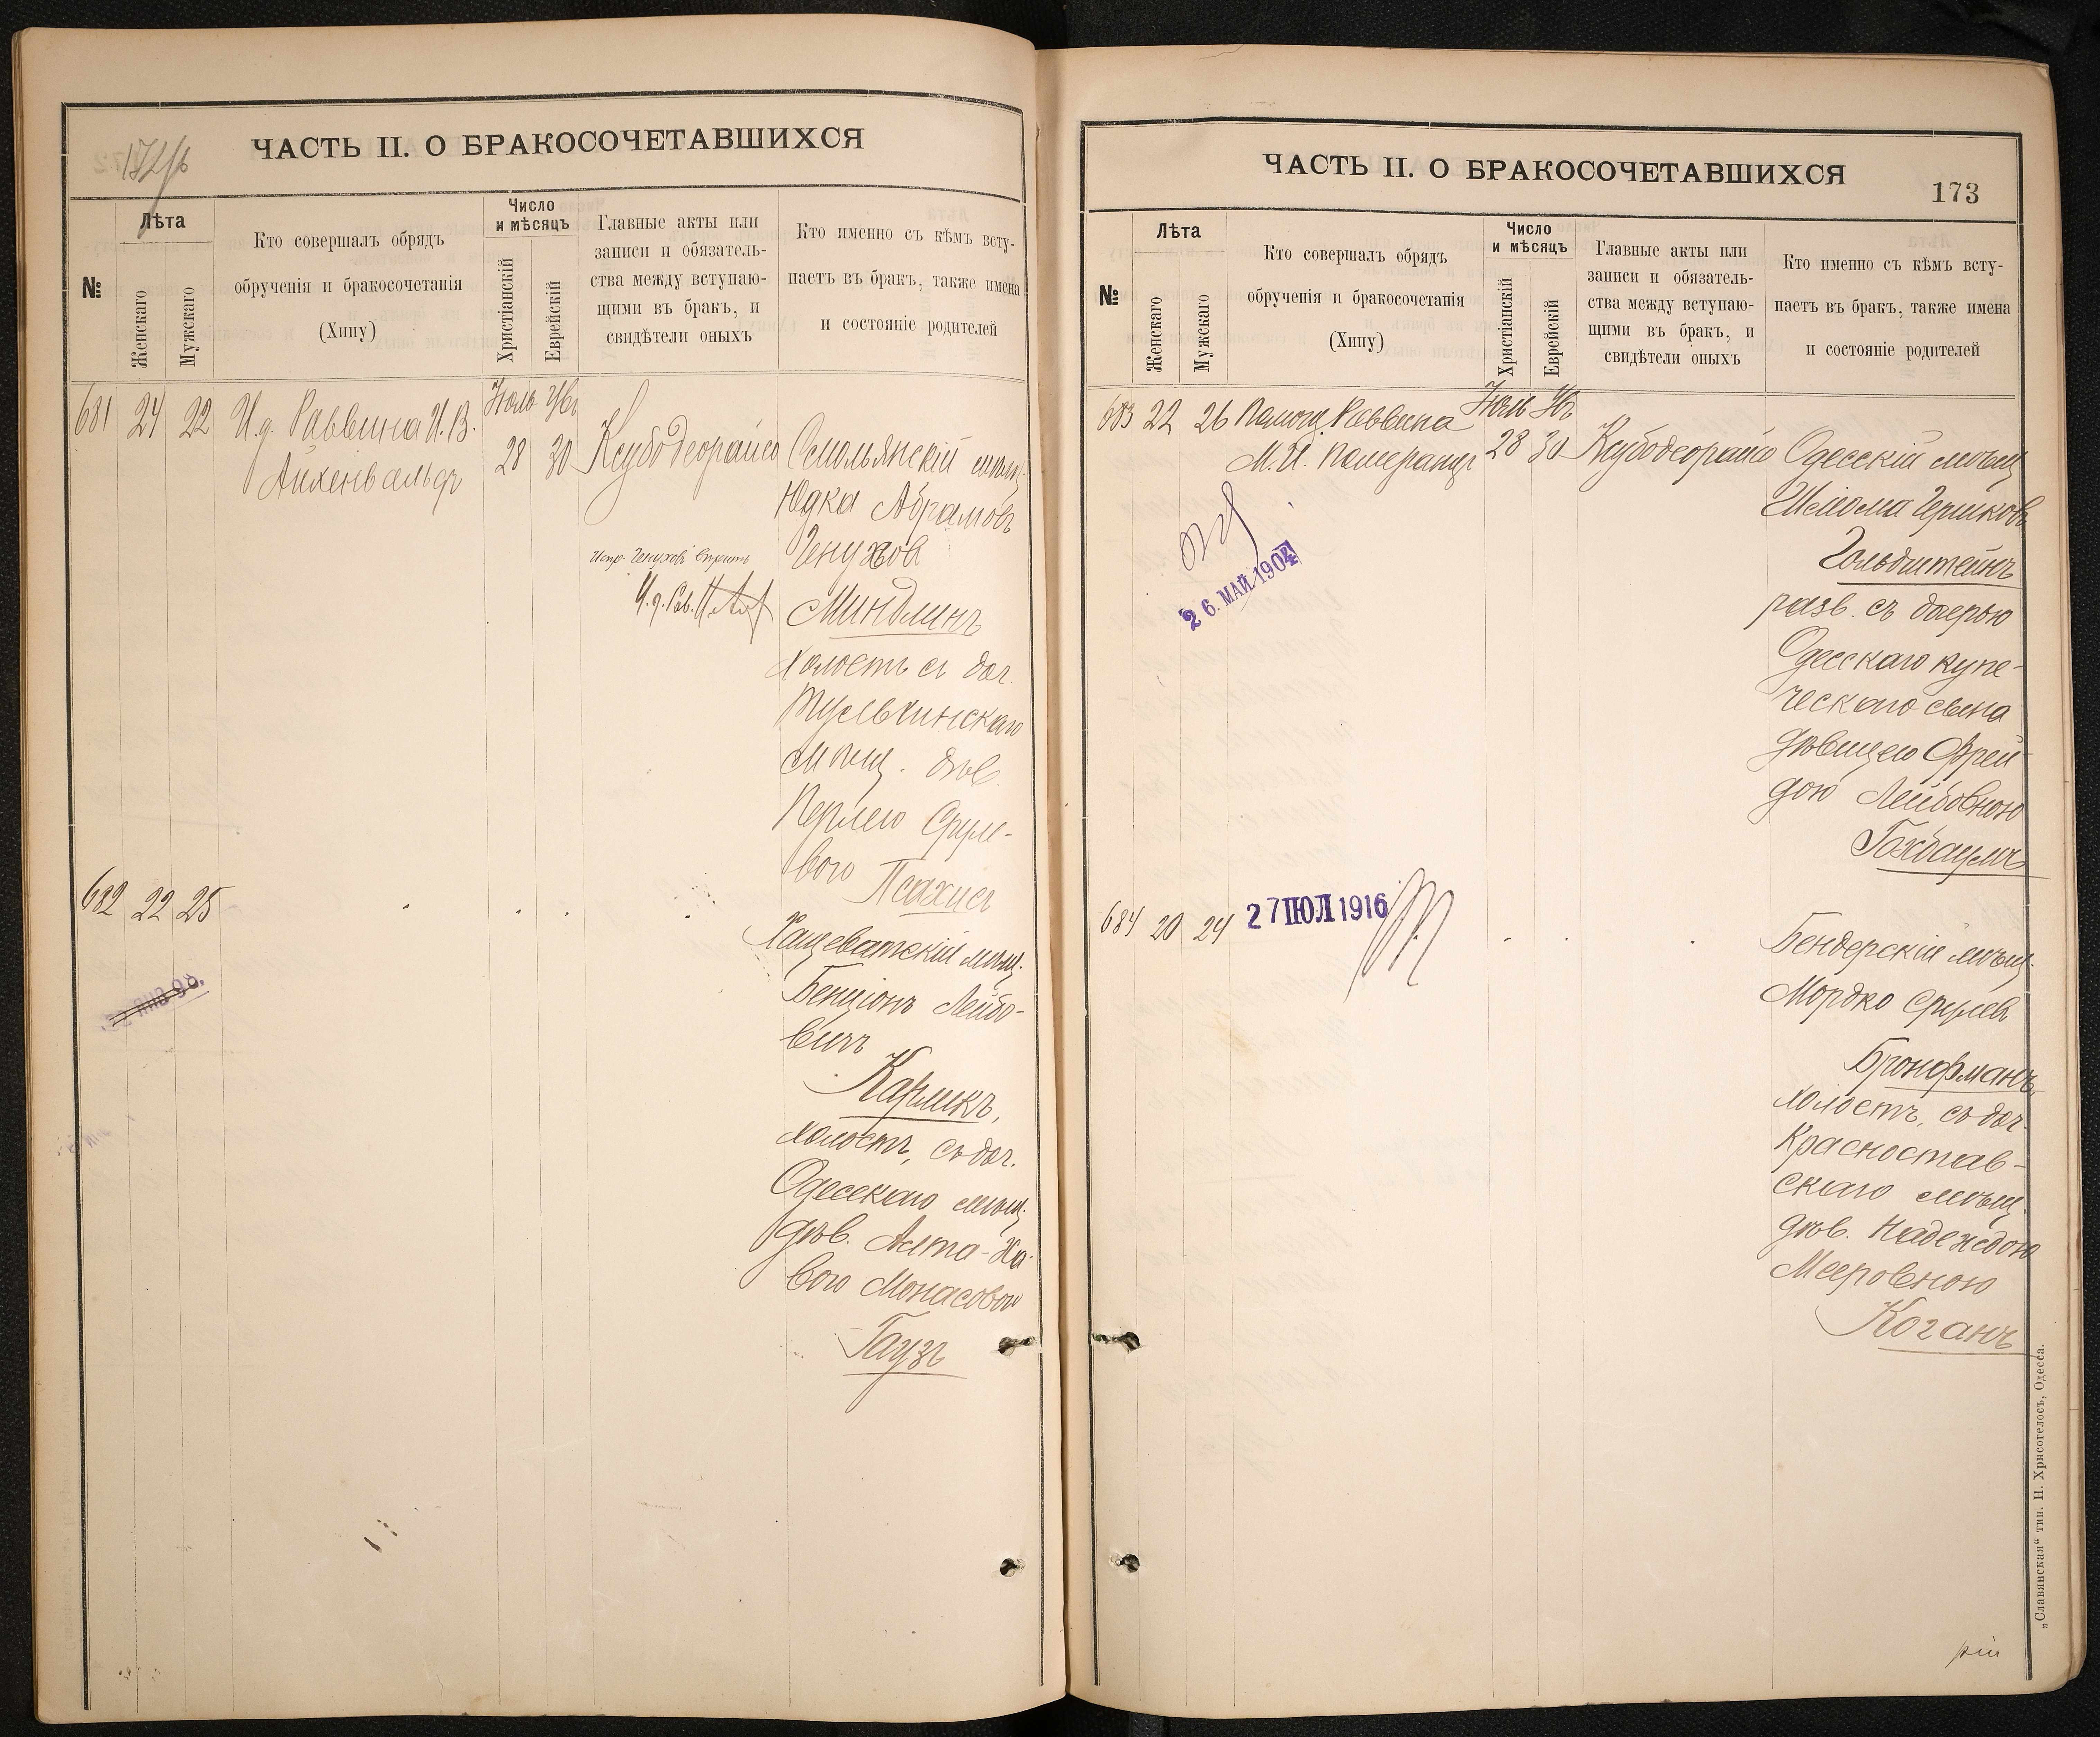 172/б
ЧАСТЬ II. О БРАКОСОЧЕТАВШИХСЯ
№
Лѣта
Женскаго
Мужскаго
Кто совершалъ обрядъ
обрученія и бракосочетанія
(Хипу)
Число
и мѣсяцъ
Христіанскій
Еврейскій
Главные акты или
записи и обязатель-
ства между вступаю-
щими въ бракъ, и
свидѣтели оныхъ
Кто именно съ кѣмъ всту-
паетъ въ бракъ, также имена
и состояніе родителей
681 24 22 И.д. Раввина И.В.
Айхенвальдъ
Іюль
28 30 Ксубо деорайсо
Смольянскій мѣщ.
Юдка Абрамовъ
Генуховъ
Испр. Генуховъ вѣрить
И.д. Рав.
Миндлинъ
холостъ съ доч.
Тульчинскаго
мѣщ. дѣв.
Перлею Сруле-
вою Псахисъ
682 22 25
Хащеватскій мѣщ.
Бенціонъ Лейбо-
вичъ
Карликъ,
холостъ, съ доч.
Одесскаго мѣщ.
дѣв. Алта-Ха-
вою Монасовою
Гаузъ
ЧАСТЬ II. О БРАКОСОЧЕТАВШИХСЯ
173
№
Лѣта
Женскаго
Мужскаго
Кто совершалъ обрядъ
обрученія и бракосочетанія
(Хипу)
Число
и мѣсяцъ
Христіанскій
Еврейскій
Главные акты или
записи и обязатель-
ства между вступаю-
щими въ бракъ, и
свидѣтели оныхъ
Кто именно съ кѣмъ всту-
паетъ въ бракъ, также имена
и состояніе родителей
683 22 26 Помощ. Раввина
М.И. Померанцъ
Іюль
28 30 Ксубо деорайсо
26. МАЙ 1904
Одесскій мѣщ
Шліома Гершковъ
Гольдштейнъ
разв. съ дочерью
Одесскаго купе-
ческаго сына
дѣвицею Фрей-
дою Лейбовною
Гохбаумъ
684 20 24
27 ІЮЛ 1916
Бендерскій мѣщ.
Мордко Срулевъ
Бронфманъ
холостъ, съ доч.
Красностав-
скаго мѣщ.
дѣв. Надеждою
Мееровною
Коганъ
„Славянская“ тип. Н. Хрисогелосъ, Одесса.